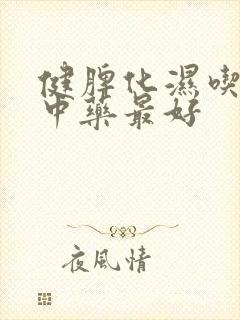 健脾化濕喫
中藥最好
夜風情